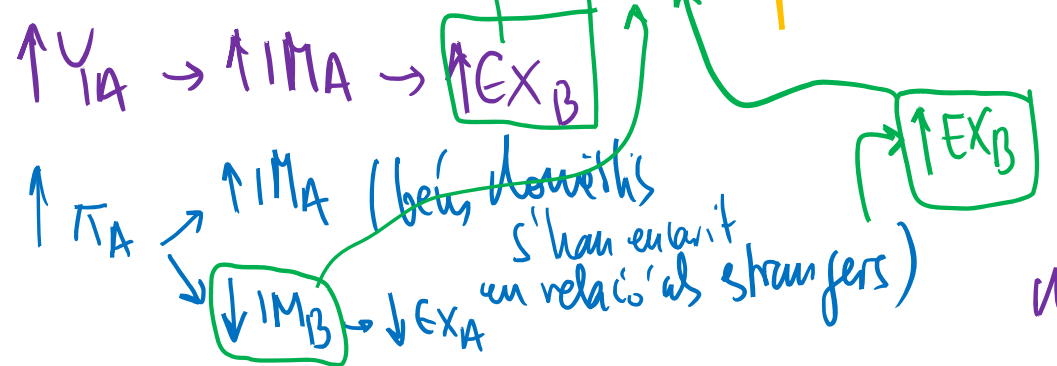 ↑ Y_A → ↑ IM_A → ↑ EX_B
↑ EX_B
↑ π_A ↑ IM_A (béns domèstics
s'han encarit
en relació als estrangers)
↓ IM_B → ↓ EX_A